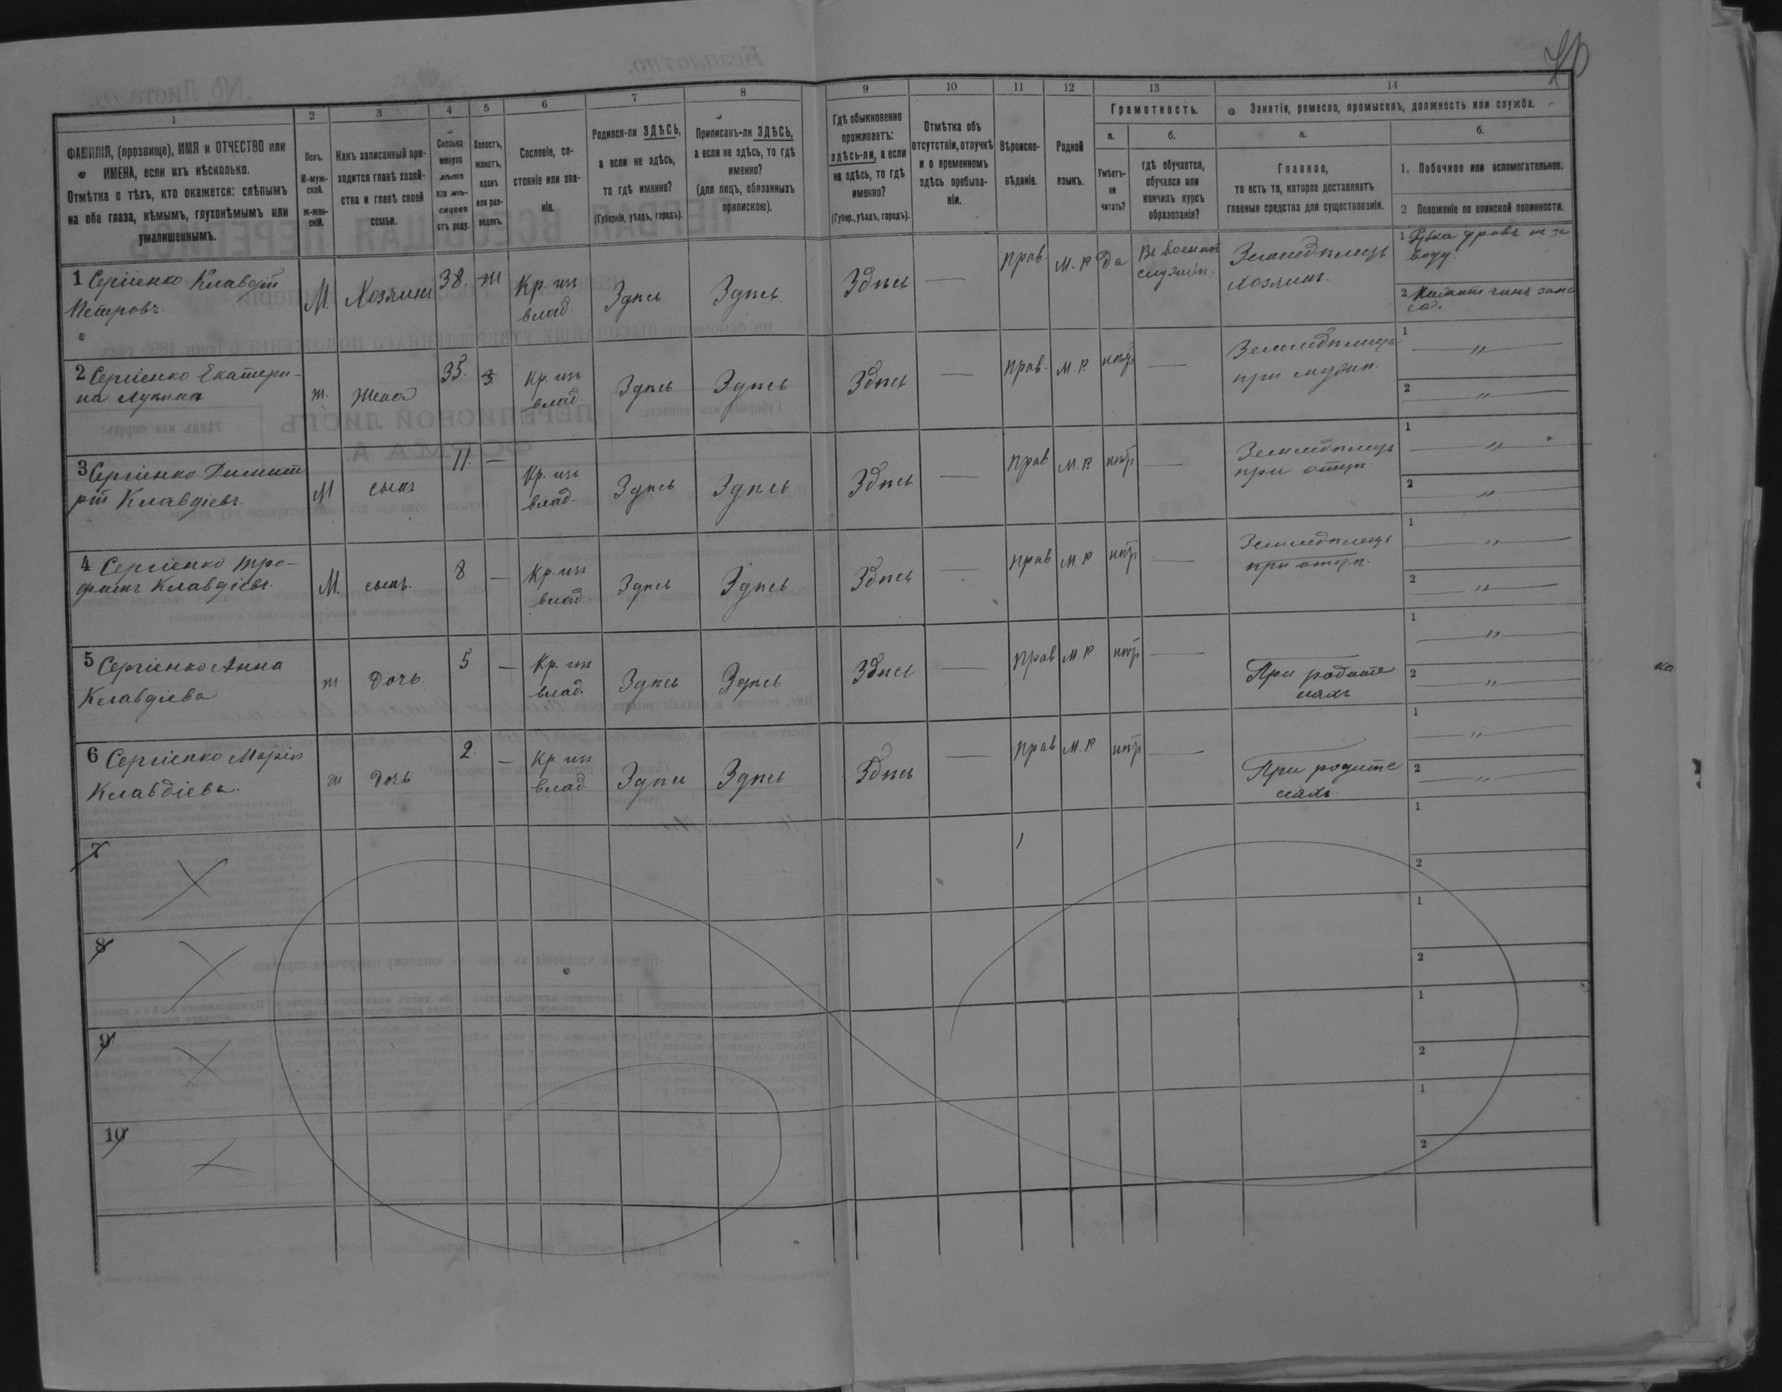 40
1 2 3 4 5 6 7 8 9 10 11 12 13 14
ФАМИЛІЯ, (прозвище), ИМЯ и ОТЧЕСТВО или
ИМЕНА, если ихъ нѣсколько.
Отмѣтка о тѣхъ, кто окажется: слѣпымъ
на оба глаза, нѣмымъ, глухонѣмымъ или
умалишеннымъ.
Полъ.
М-муж-
ской.
ж-жен-
скій.
Какъ записанный при-
ходится главѣ хозяй-
ства и главѣ своей
семьи.
Сколько
минуло
лѣтъ
или мѣ-
сяцевъ
отъ роду.
Холостъ,
женатъ,
вдовъ
или раз-
веденъ.
Сословіе, со-
стояніе или зва-
ніе.
Родился-ли ЗДѢСЬ,
а если не здѣсь,
то гдѣ именно?
(Губернія, уѣздъ, городъ).
Приписанъ-ли ЗДѢСЬ,
а если не здѣсь, то гдѣ
именно?
(для лицъ, обязанныхъ
припискою).
Гдѣ обыкновенно
проживаетъ:
здѣсь-ли, а если
не здѣсь, то гдѣ
именно?
(Губер., уѣздъ, городъ).
Отмѣтка объ
отсутствіи, отлучкѣ
и о временномъ
здѣсь пребыва-
ніи.
Вѣроиспо-
вѣданіе.
Родной
языкъ.
Грамотность.
а.
Умѣетъ-
ли
читать?
б.
гдѣ обучается,
обучался или
кончилъ курсъ
образованія?
Занятіе, ремесло, промыселъ, должность или служба.
а.
Главное,
то есть то, которое доставляетъ
главныя средства для существованія.
б.
1. Побочное или вспомогательное.
2 Положеніе по воинской повинности.
1 Сергіенко Клавдій
Петровъ.
М. Хозяинъ 38. ж Кр. изъ
влад. Здѣсь Здѣсь Здѣсь — прав. М. Р да Въ военной
служб. Земледѣлецъ
хозяинъ.
1 Рубка дровъ
2
2 Сергіенко Екатери-
на Лукина
ж. Жена 35. з. Кр. изъ
влад. Здѣсь Здѣсь Здѣсь — прав. М. Р нѣтъ — Земледѣлица
при мужѣ.
1 — " —
2 — " —
3 Сергіенко Димит
рій Клавдіевъ.
М сынъ 11. — Кр. изъ
влад. Здѣсь Здѣсь Здѣсь — прав М. Р нѣтъ — Земледѣлецъ
при отцѣ.
1 — " —
2 — " —
4 Сергіенко Тро-
фимъ Клавдіевъ.
М. сынъ. 8 — Кр. изъ
влад. Здѣсь Здѣсь Здѣсь — прав М. Р нѣтъ — Земледѣлецъ
при отцѣ.
1 — " —
2 — " —
5 Сергіенко Анна
Клавдіева
ж дочь 5 — Кр. изъ
влад. Здѣсь Здѣсь Здѣсь — прав М. Р нѣтъ — При родите
ляхъ
1 — " —
2 — " —
6 Сергіенко Марія
Клавдіева.
ж дочь 2. — Кр. изъ
влад. Здѣсь Здѣсь Здѣсь — прав М. Р нѣтъ — При родите
ляхъ.
1 — " —
2 — " —
7
1
2
8
1
2
9
1
2
10
1
2